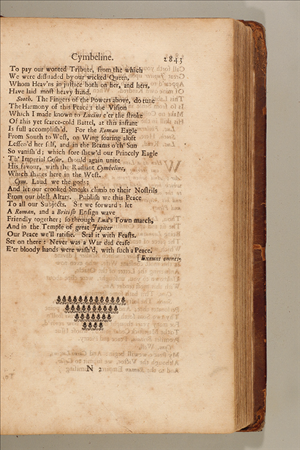 Cymbeline. 2845
To pay our wonted Tribute, from the which
We were dissuaded by our wicked Queen,
Whom Heav'ns in justice both on her, and hers,
Have laid most heavy hand.
Sooth. The Fingers of the Powers above, do tune
The Harmony of this Peace: the Vision
Which I made known to Lucius e'er the stroke
Of this yet scarce-cold Battel, at this instant
Is full accomplish'd. For the Roman Eagle
From South to West, on Wing soaring aloft
Lessen'd her self, and in the Beams o'th' Sun
So vanish'd; which fore-shew'd our Princely Eagle
Th' Imperial Cæsar, should again unite
His favour, with the Radiant Cymbeline,
Which shines here in the West.
Cym. Laud we the gods;
And let our crooked Smoaks climb to their Nostrils
From our blest Altars. Publish we this Peace
To all our Subjects. Set we forward: let
A Roman, and a British Ensign wave
Friendly together; so through Lud's Town march,
And in the Temple of great Jupiter
Our Peace we'll ratifie. Seal it with Feasts.
Set on there: Never was a War did cease
E'er bloody hands were wash'd, with such a Peace.
[Exeunt omnes.
N 2